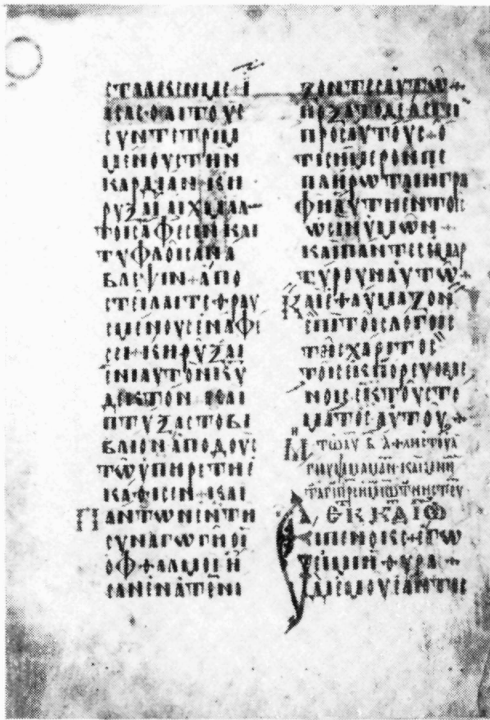 ΕСΤΑΛΚΕΝ ΜΕ Ι
ΑСΑСΘΑΙ ΤΟΥС
СΥΝΤΕΤΡΙΜ
ΜΕΝΟΥС ΤΗΝ
ΚΑΡΔΙΑΝ· ΚΗ
ΡΥΞΑΙ ΑΙΧΜΑΛ
ΤΟΙС ΑΦΕСΙΝ ΚΑΙ
ΤΥΦΛΟΙС ΑΝΑ
ΒΛΕΨΙΝ· ΑΠΟ
СΤΕΙΛΑΙ ΤΕΘΡΑΥ
СΜΕΝΟΥС ΕΝ ΑΦΕ
СΕΙ· ΚΗΡΥΞΑΙ
ΕΝΙΑΥΤΟΝ ΚΥ
ΔΕΚΤΟΝ· ΚΑΙ
ΠΤΥΞΑС ΤΟ ΒΙ
ΒΛΙΟΝ ΑΠΟΔΟΥС
ΤΩ ΥΠΗΡΕΤΗ Ε
ΚΑΘΙСΕΝ· ΚΑΙ
ΠΑΝΤΩΝ ΕΝ ΤΗ
СΥΝΑΓΩΓΗ ΟΙ
ΟΦΘΑΛΜΟΙ Η
СΑΝ ΕΝΑΤΕΝΙ
ΖΟΝΤΕС ΑΥΤΩ+
ΗΡΞΑΤΟ ΔΕ ΛΕΓΕΙ
ΠΡΟС ΑΥΤΟΥС· Ο
ΤΙ СΗΜΕΡΟΝ ΠΕ
ΠΛΗΡΩΤΑΙ Η ΓΡΑ
ΦΗ ΑΥΤΗ ΕΝ ΤΟΙС
ΩСΙΝ ΥΜΩΝ+
ΚΑΙ ΠΑΝΤΕС ΕΜΑΡ
ΤΥΡΟΥΝ ΑΥΤΩ+
ΚΑΙ ΕΘΑΥΜΑΖΟΝ
ΕΠΙ ΤΟΙС ΛΟΓΟΙС
ΤΗС ΧΑΡΙΤΟС
ΤΟΙС ΕΚΠΟΡΕΥΟΜΕ
ΝΟΙС ΕΚ ΤΟΥ СΤΟ
ΜΑΤΟС ΑΥΤΟΥ+
ΕΚ Κ ΚΑΤ ΙΩ
ΕΙΠΕΝ Ο ΚС· ΕΓΩ
ΕΙΜΙ Η ΘΥΡΑ+
ΔΙ ΕΜΟΥ ΕΑΝ ΤΙС